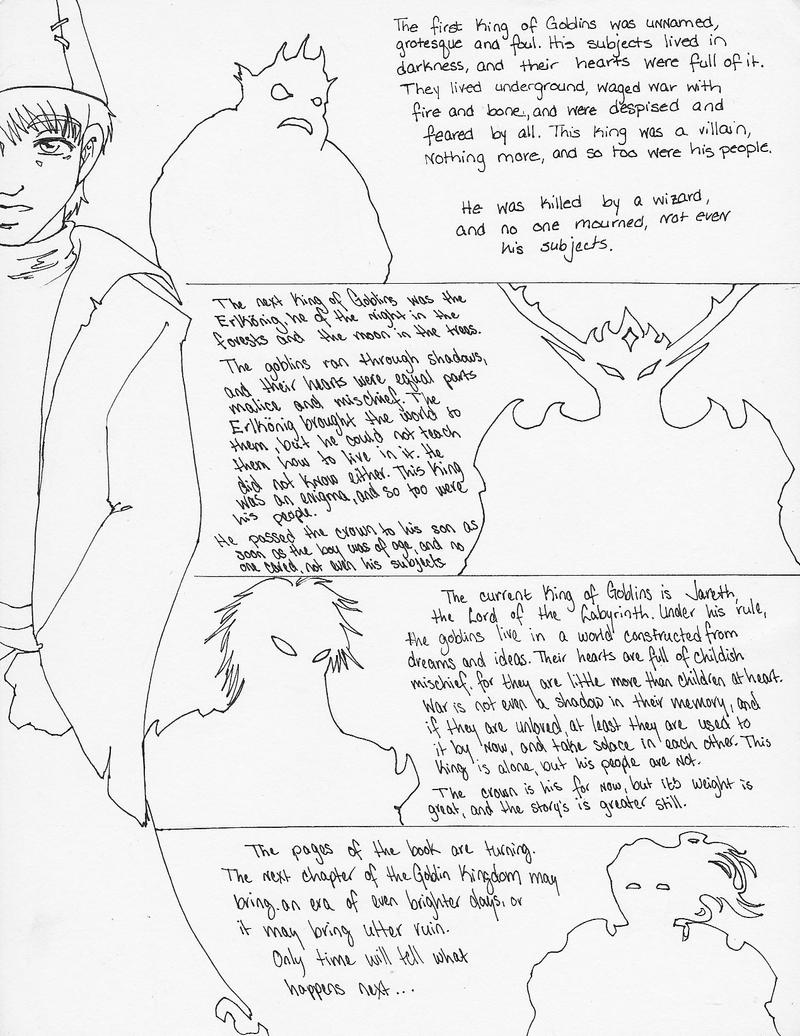 The first King of Goblins was unnamed,
grotesque and foul. His subjects lived in
darkness, and their hearts were full of it.
They lived underground, waged war with
fire and bone, and were despised and
feared by all. This King was a villain,
Nothing more, and so too were his people.
He was killed by a wizard,
and no one mourned, not even
his subjects.
The next King of Goblins was the
Erlkönig, he of the night in the
forests and the moon in the trees.
The goblins ran through shadows,
and their hearts were equal parts
malice and mischief. The
Erlkönig brought the world to
them, but he could not teach
them how to live in it. He
did not know either. This King
was an enigma, and so too were
his people.
He passed the crown to his son as
soon as the boy was of age, and no
one cared, not even his subjects
The current King of Goblins is Jareth,
the Lord of the Labyrinth. Under his rule,
the goblins live in a world constructed from
dreams and ideas. Their hearts are full of childish
mischief, for they are little more than children at heart.
War is not even a shadow in their memory, and
if they are unloved, at least they are used to
it by now, and take solace in each other. This
King is alone, but his people are not.
The crown is his for now, but it's weight is
great, and the story's is greater still.
The pages of the book are turning.
The next chapter of the Goblin Kingdom may
bring an era of even brighter days, or
it may bring utter ruin.
Only time will tell what
happens next...